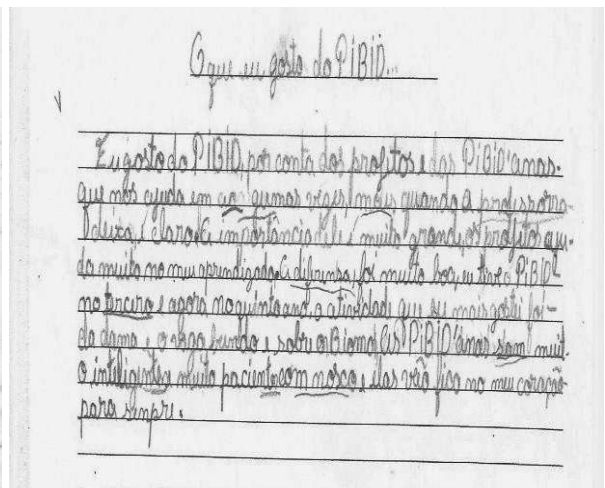 O que eu gosto do PiBiD...
Eu gosto do PIBID, por conta dos profitos e das PiBiD'anas.
que nos ajuda em vezes, mais quando a professorra
deixa, claro. A importância dele é muito grande, os profitos aju-
da muito no meu aprendizado. A difrensa foi muito boa, eu tive o PiBiD
no terceiro e agora no quinto ano, a atividade que eu mais gostei foi
da dama, e o sobre o Bioma. As PiBiD'anas sam muit-
o inteligentes muito paciente com nosco, e elas vão fica no meu coração
para sempre.